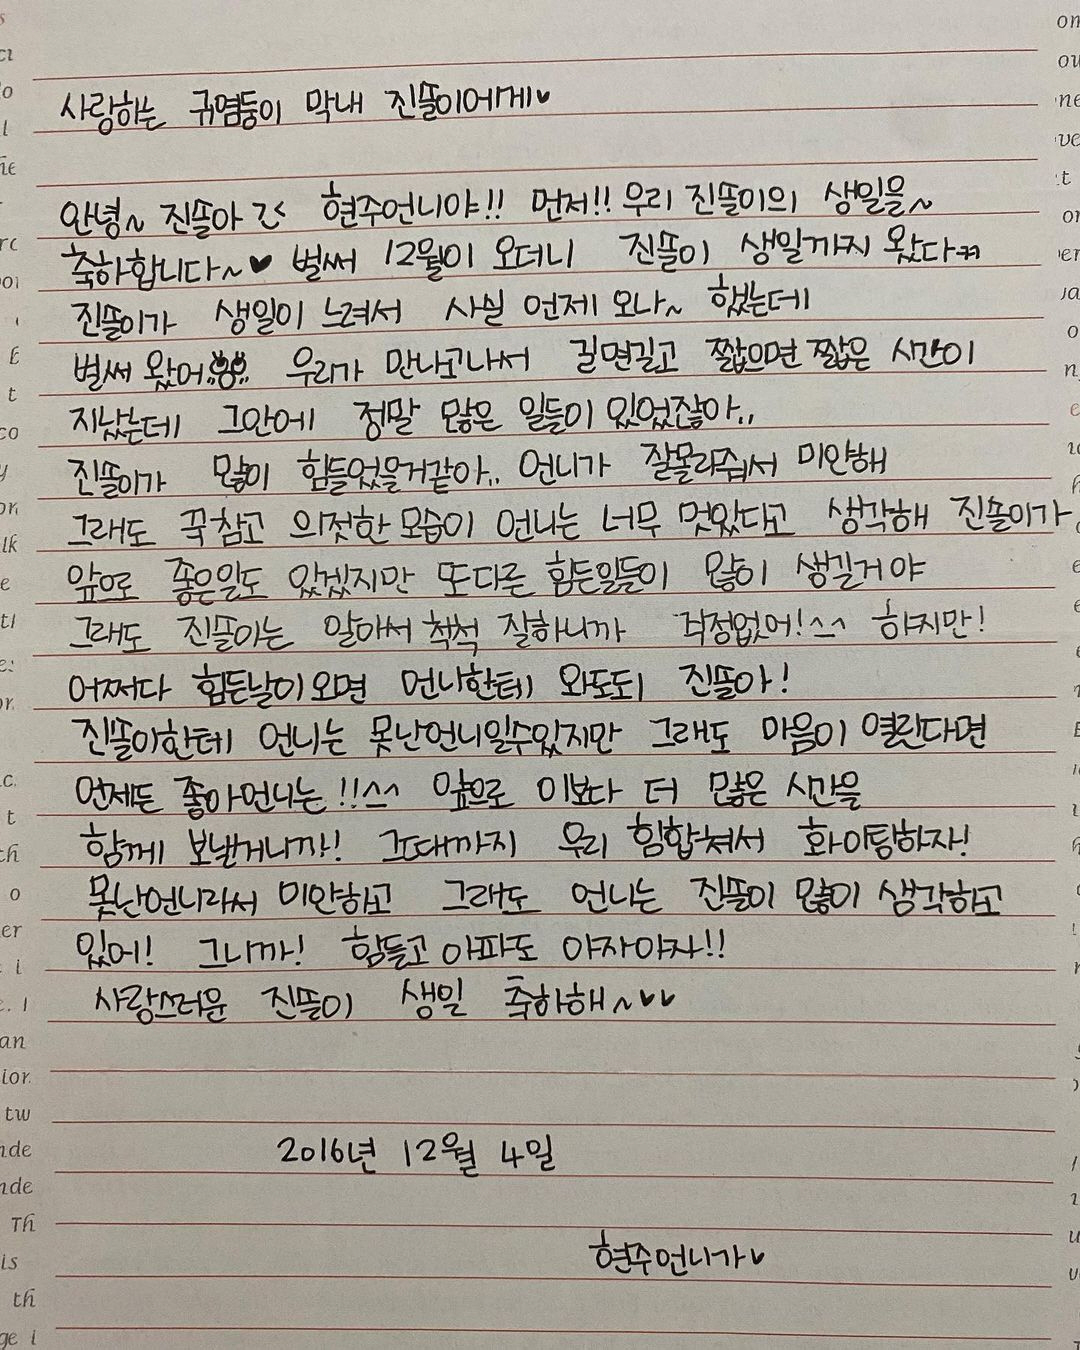 사랑하는 귀염둥이 막내 진뜰이에게♥
안녕~ 진뜰아 ㄹ< 현주언니야!! 먼저!! 우리 진뜰이의 생일을~
축하합니다~♥ 벌써 12월이 오더니 진뜰이 생일까지 왔다ㅠㅠ
진뜰이가 생일이 느려서 사실 언제 오나~ 했는데
벌써 왔어 우리가 만나고나서 길면길고 짧으면 짧은 시간이
지났는데 그안에 정말 많은 일들이 있었잖아..
진뜰이가 많이 힘들었을거같아.. 언니가 잘몰라줘서 미안해
그래도 꾹참고 의젓한모습이 언니는 너무 멋있다고 생각해 진뜰이가
앞으로 좋은일도 있겠지만 또다른 힘든일들이 많이 생길거야
그래도 진뜰이는 알아서 척척 잘하니까 걱정없어!^^ 하지만!
어쩌다 힘든날이오면 언니한테 와도돼 진뜰아!
진뜰이한테 언니는 못난언니일수있지만 그래도 마음이 열린다면
언제든 좋아언니는!!^^ 앞으로 이보다 더 많은 시간을
함께 보낼거니까! 그때까지 우리 힘합쳐서 화이팅하자!
못난언니라서 미안하고 그래도 언니는 진뜰이 많이 생각하고
있어! 그니까! 힘들고 아파도 아자아자!!
사랑스러운 진뜰이 생일 축하해~♥♥
2016년 12월 4일
현주언니가♥